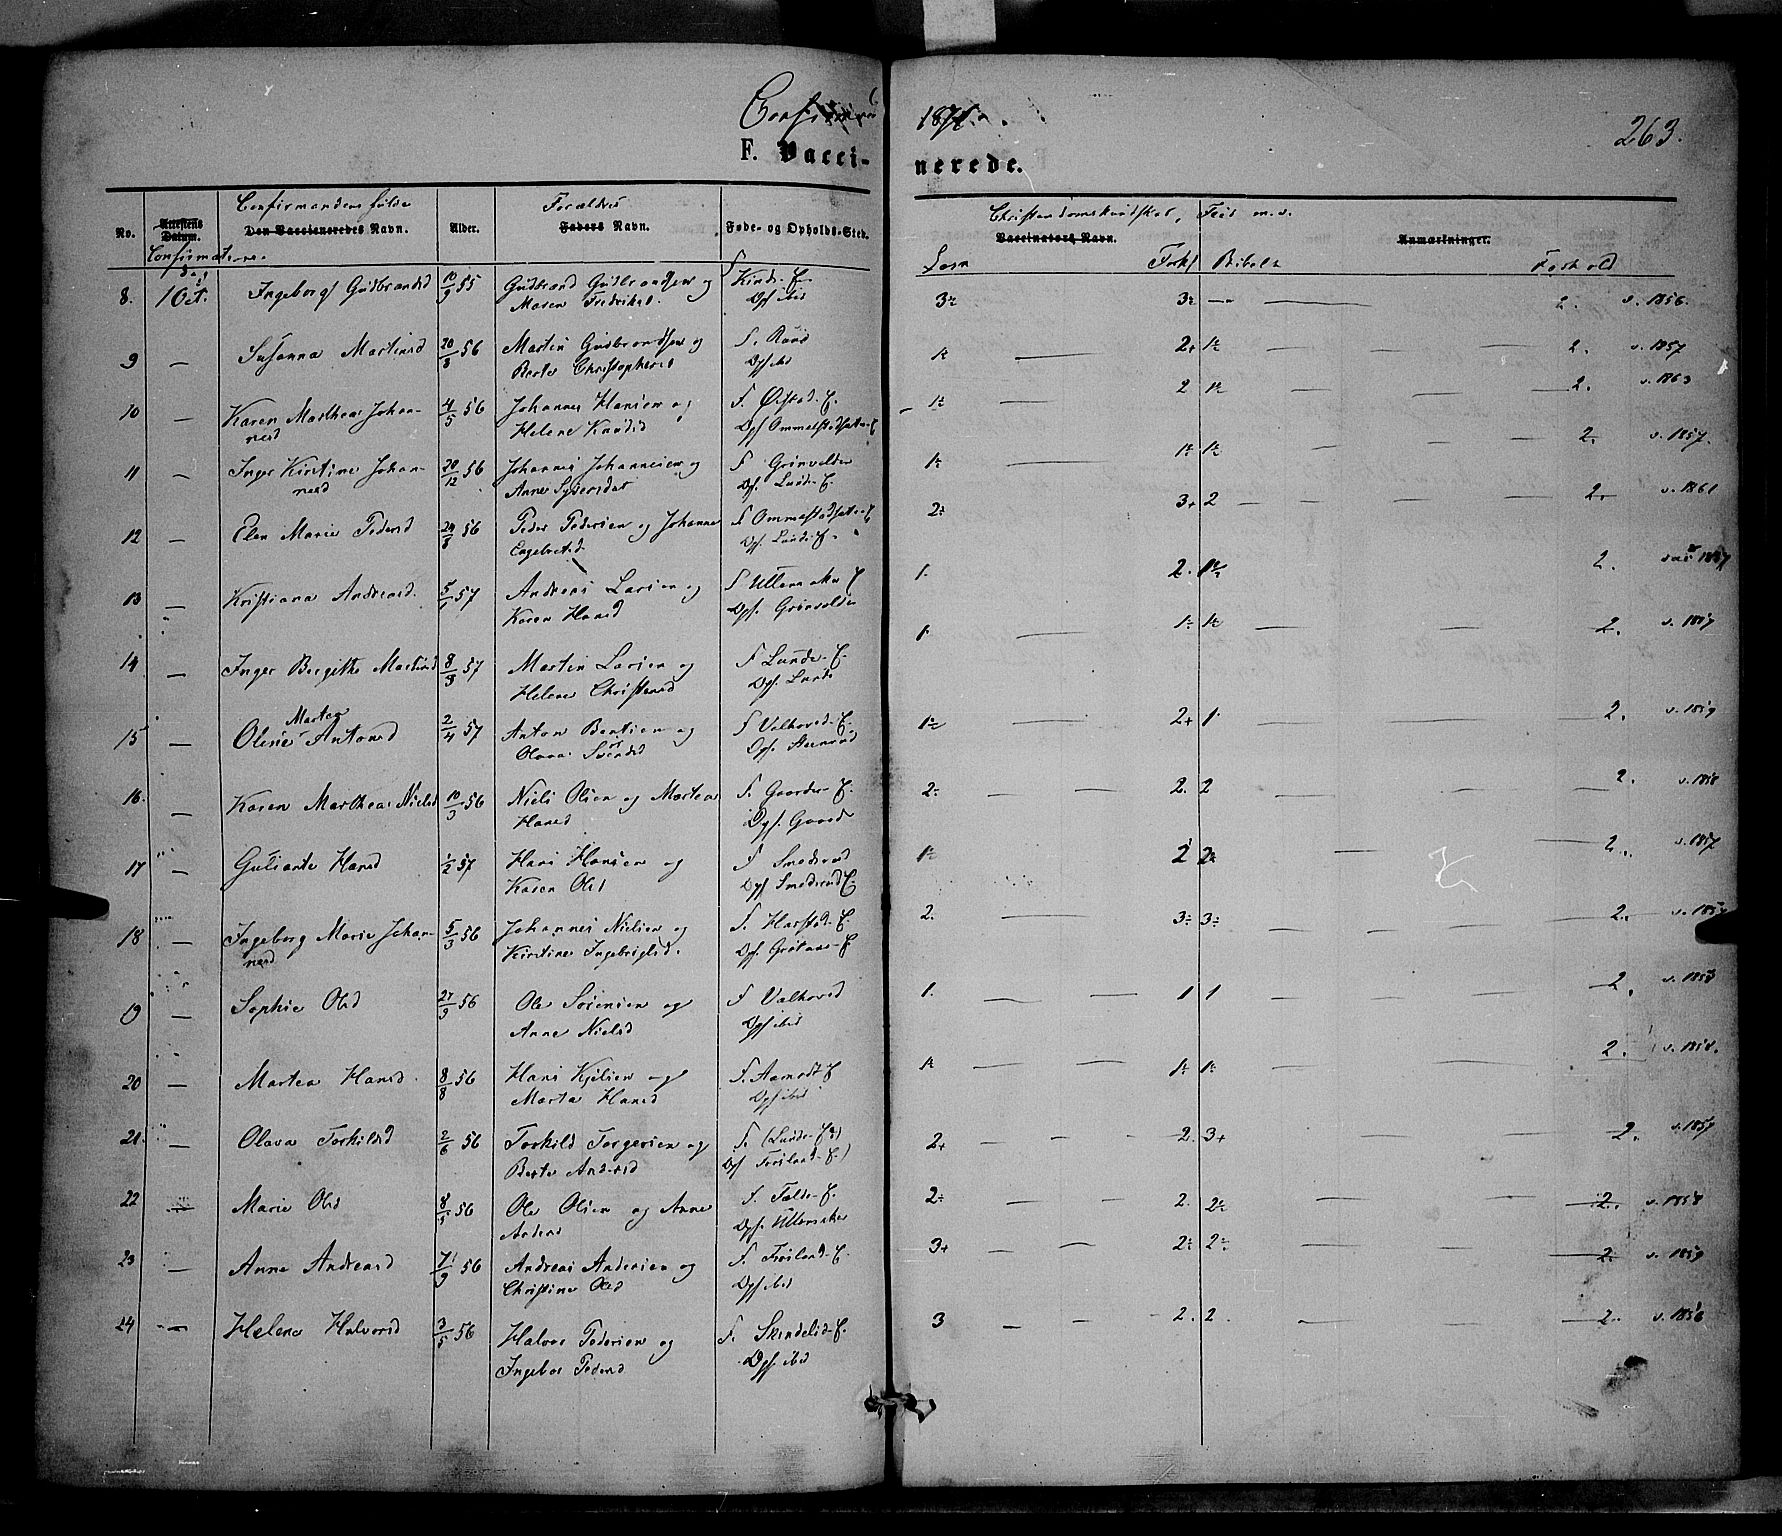 Confirmerede 1871.
263.
F. Vacci- nerede.
No. Attestens Datum. Confirmandens fulde Den Vaccineredes Navn. Alder. Forældres Faders Navn. Føde- og Opholds-Sted. Christendomskundskab, Flid m.v. Vaccinators Navn. Anmærkninger.
Confirmations
Dag Læsn Forkl Bibelh Forhold
8. 1 Oct. Ingeborg Gudbrandsd 10/9 55 Gudbrand Gudbrandsen og F Kinds-E. 3÷ 3÷ — 2. v. 1856.
Maren Fredriksd. Opf ibid
9 — Susanna Martinsd 20/8 56 Martin Gudbrandsen og F. Ruud 1÷ — 2+ 1÷ — 2. v. 1857
Berte Christophersd Opf ibid
10 — Karen Marthea Johan- 4/5 56 Johannes Hansen og F. Øistad-E. 1÷ — 2 1÷ — 2. v. 1863
nesd Helene Knudsd Opf Ommelstadsætre-E
11 — Inger Kirstine Johan- 20/12 56 Johannes Johannesen og F Grønvolden 1÷ — 1÷ 1÷ — 2. v. 1857.
nesd Anne Syversdat Opf. Lunde-E.
12 — Elen Marie Pedersd 24/8 56 Peder Pedersen og Johanne F Ommestadsætre-E 2÷ 3+ 2 — 2. v. 1861
Engebretsd. Opf. Lunde-E.
13 — Kristiana Andreasd. 5/1 57 Andreas Larsen og F Ullensaker E 1. 2. 1÷ 2. 1857
Karen Hansd Opf. Grønvolden
14 — Inger Bergitte Martinsd 8/3 57 Martin Larsen og F Lunde-E. 1. — 1÷ 1÷ — 2. v. 1857
Helene Christensd Opf. Lunde
15 — Oline Martea Antonsd 2/4 57 Anton Bentsen og F Valhovd-E. 1÷ — 2+ 1. — 2. v. 1859
Olava Svendsd Opf. Steenrud
16. — Karen Marthea Nielsd 10/3 56 Niels Olsen og Martea F. Gaarder-E. 2÷ — 2. 2 — 2. v. 1858
Hansd Opf. Gaard
17 — Guliante Hansd 1/2 57 Hans Hansen og F Smedsrud 1÷ 2 2÷ — 2. v. 1857
Karen Olsd Opf Smedsrud E.
18 — Ingeborg Marie Johan- 5/3 56 Johannes Nielsen og F. Harstad-E. 2. — 3÷ 3÷ — 2.
nesd Kirstine Ingebrigtsd. Opf. Grøtaas-E.
19 — Sophie Olsd 27/9 56 Ole Sørensen og F Valhovd 1. — 1 1 — 2.
Anne Nielsd Opf ibid
20 — Martea Hansd. 8/8 56 Hans Kjelsen og F. Aamodt E 1÷ — 1÷ 1÷ — 2. v. 1858.
Marta Hansd Opf ibid
21. — Olava Torkildsd 2/6 56 Torkild Torgersen og F. (Lunde-E) 2+ — 2. 3+ — 2. v. 1857
Berte Andersd Opf Frøsland-E)
22 — Marie Olsd 8/5 56 Ole Olsen og Anne F. Falde-E. 2÷ — 2. 2÷ — 2. v. 1858
Andersd Opf. Ullensaker
23 — Anne Andreasd 7/9 56 Andreas Andersen og F. Frøsland-E. 3+ — 2÷ 2÷ — 2. v. 1859
Christine Olsd Opf ibid
24 — Helene Halvorsd 3/5 56 Halvor Pedersen og F. Skindelid-E. 3 — 2. 2. — 2. v. 1856
Ingebor Pedersd Opf. ibid